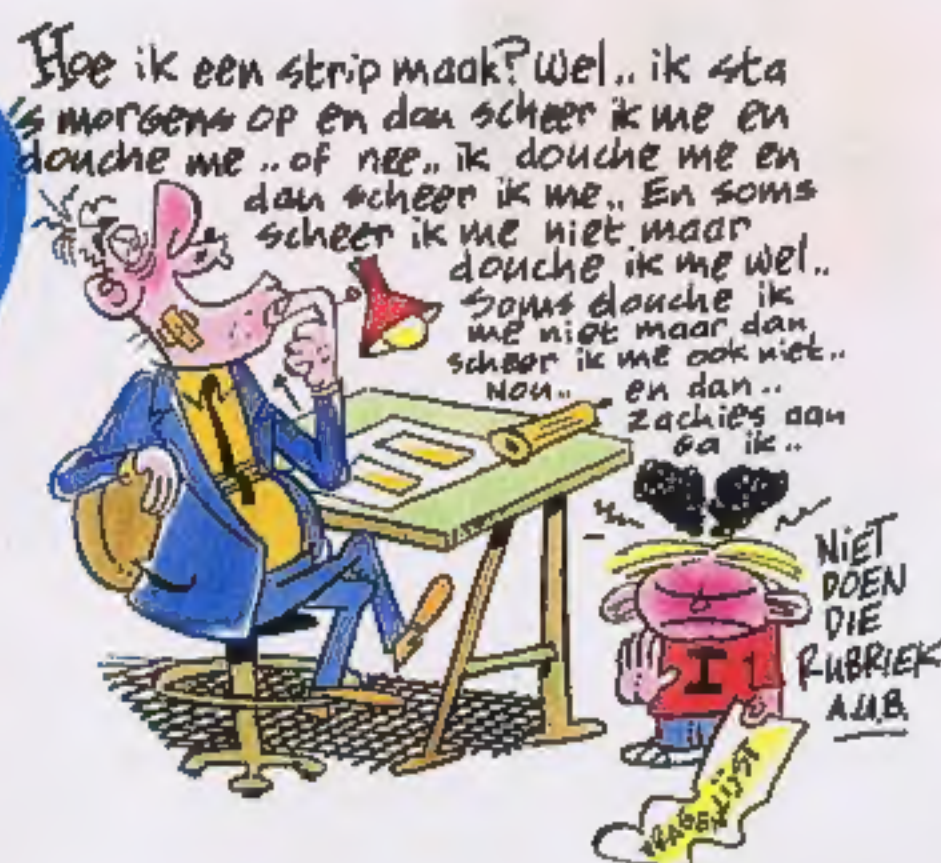 Hoe ik een strip maak? Wel.. ik sta
's morgens op en dan scheer ik me en
douche me .. of nee.. ik douche me en
dan scheer ik me.. En soms
scheer ik me niet maar
douche ik me wel..
Soms douche ik
me niet maar dan
scheer ik me ook niet..
Nou.. en dan..
Zachies aan
ga ik..
NIET
DOEN
DIE
RUBRIEK
A.U.B.
I
VRAGENLIJST